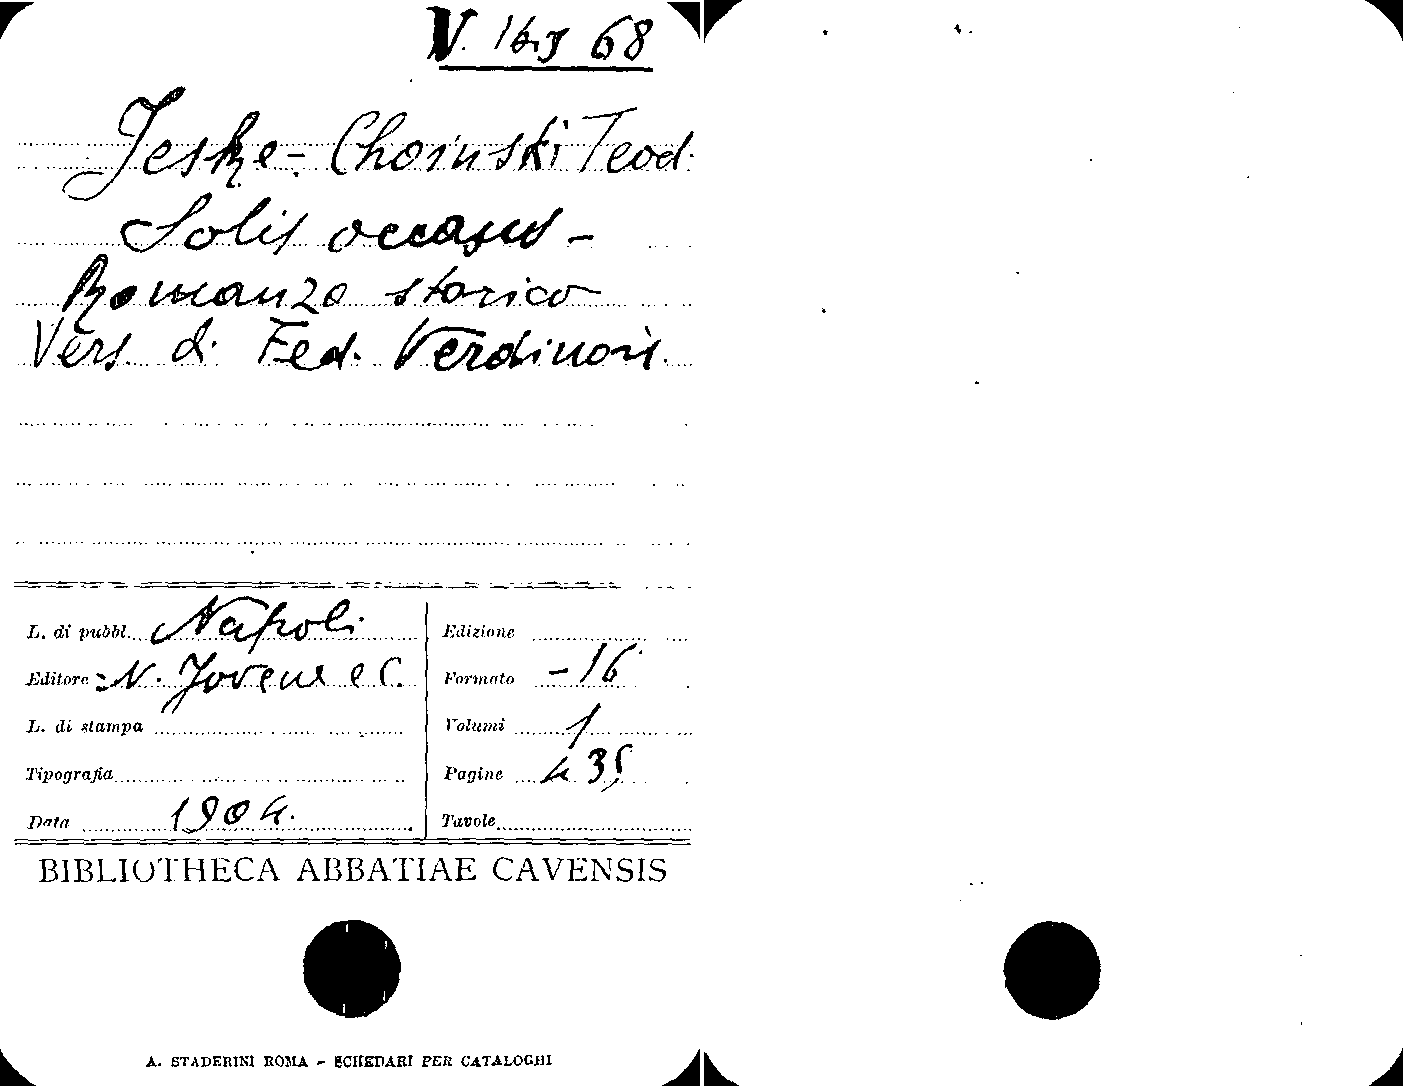 V. 16.J 68
Jeske-Choinski Teod.
Solis occasus -
Romanzo storico
Vers. di Fed. Verdinois.
L. di pubbl. Napoli
Editore N. Jovene e C.
L. di stampa
Tipografia
Data 1904.
Edizione
Formato -16
Volumi 1
Pagine 435
Tavole
BIBLIOTHECA ABBATIAE CAVENSIS
A. STADERINI ROMA - SCHEDARI PER CATALOGHI